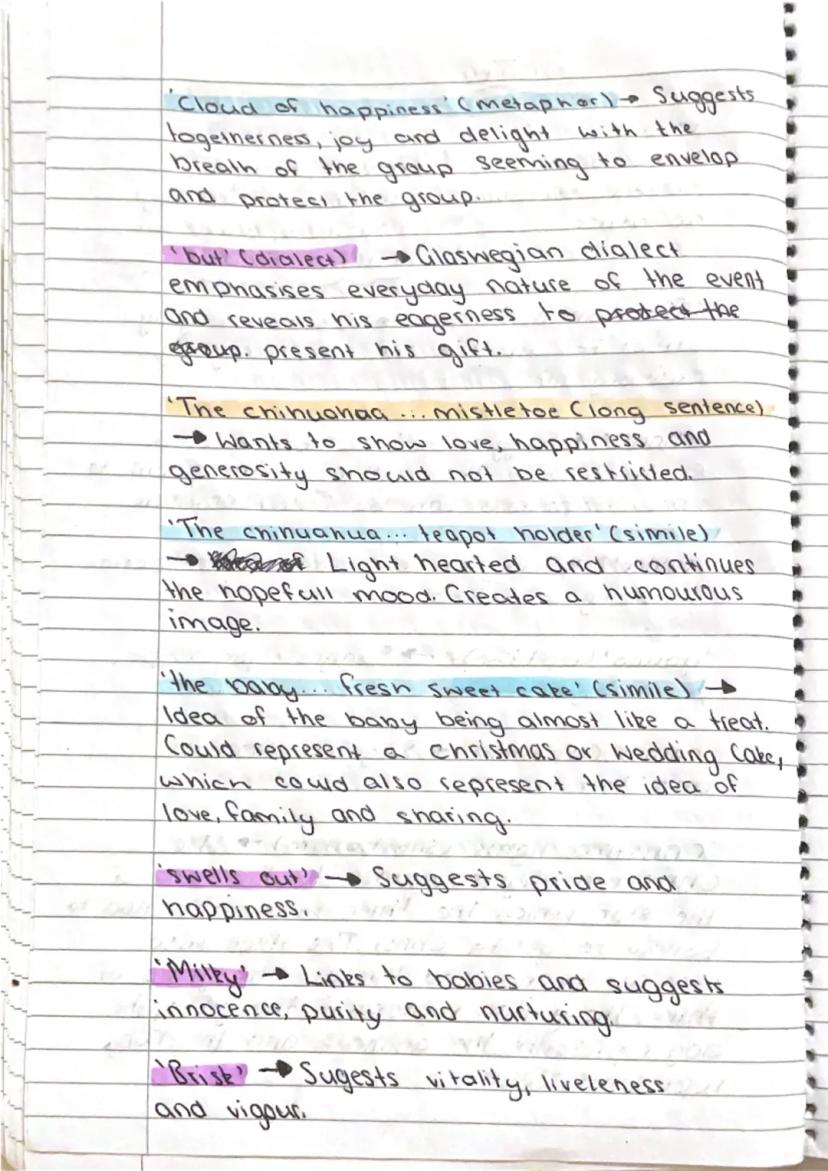 'Cloud of happiness' (metaphor) → Suggests
togetherness, joy and delight with the
breath of the group seeming to envelop
and protect the group.
'but' (dialect) → Glaswegian dialect
emphasises everyday nature of the event
and reveals his eagerness to protect the
group. present his gift.
'The chihuahaa ... mistletoe (long sentence)
→ Wants to show love, happiness and
generosity should not be restricted.
'The chihuahua ... teapot holder' (simile)
→ Light hearted and continues
the hopefull mood. Creates a humourous
image.
'the baby ... fresh sweet cake' (simile) →
Idea of the baby being almost like a treat.
Could represent a christmas or wedding cake,
which could also represent the idea of
love, family and sharing.
'swells out' → Suggests pride and
happiness.
'Milky' → Links to babies and suggests
innocence, purity and nurturing.
'Brisk' → Sugests vitality, liveleness
and vigour.